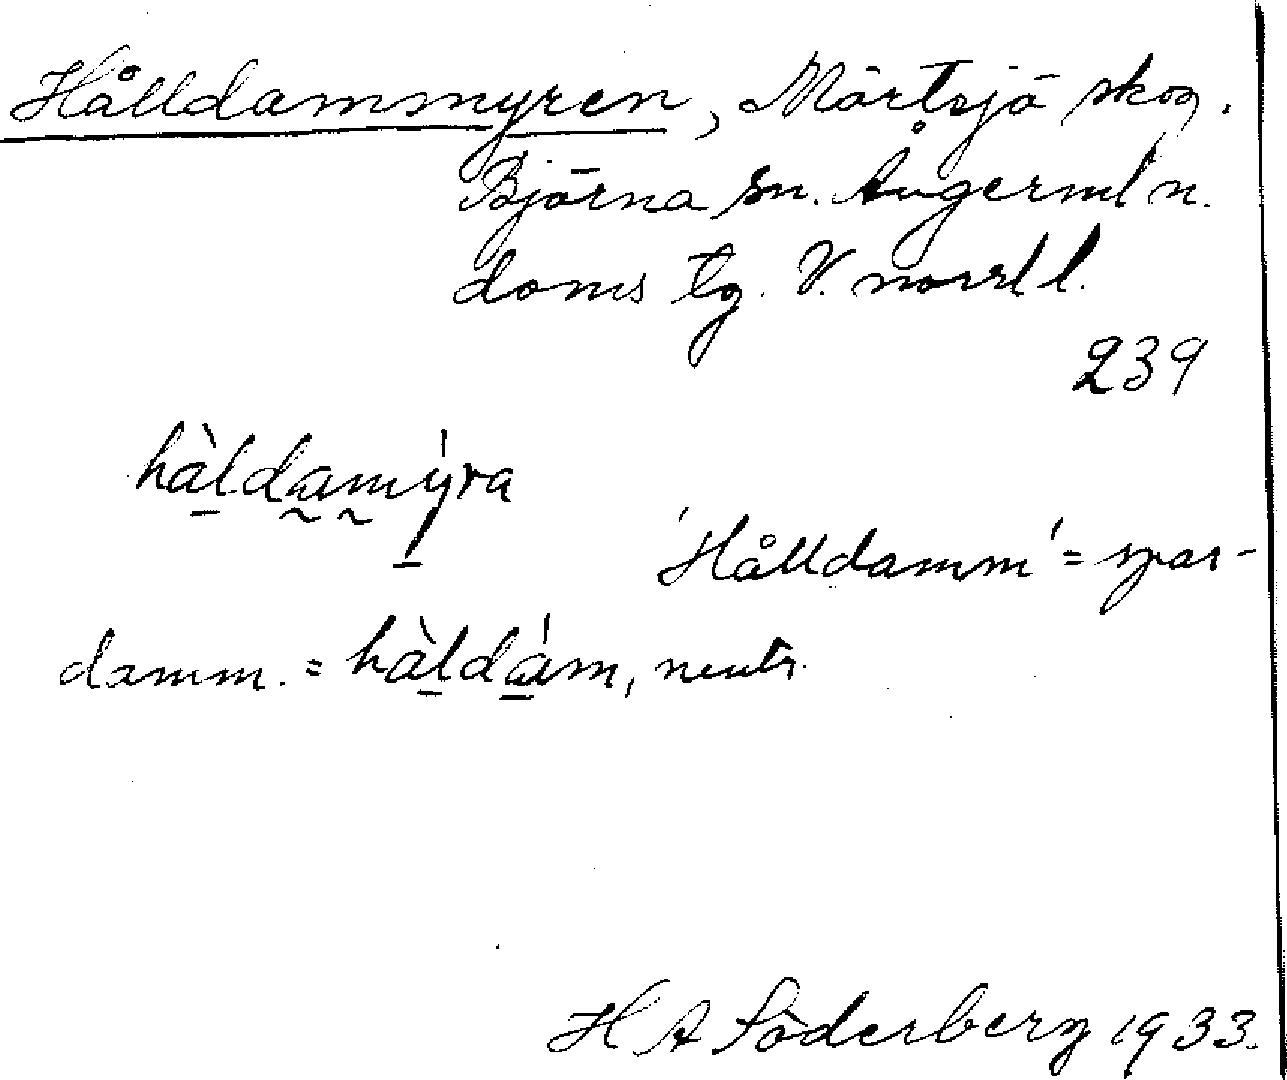 Hålldammyren, Mörtsjö skog.
Björna sn. Ångerml n.
doms tg. V. norrl l.
239
hàldamýra
'Hålldamm' = spar-
damm. = hàldám, neutr.
H A Söderberg 1933.